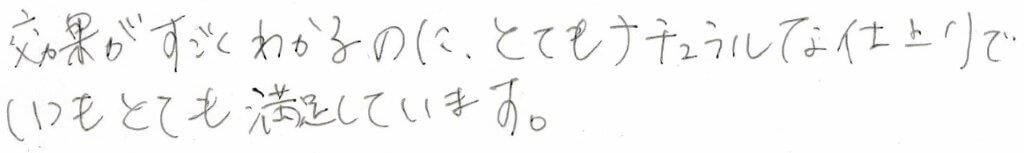 効果がすごくわかるのに、とてもナチュラルな仕上りで
いつもとても満足しています。